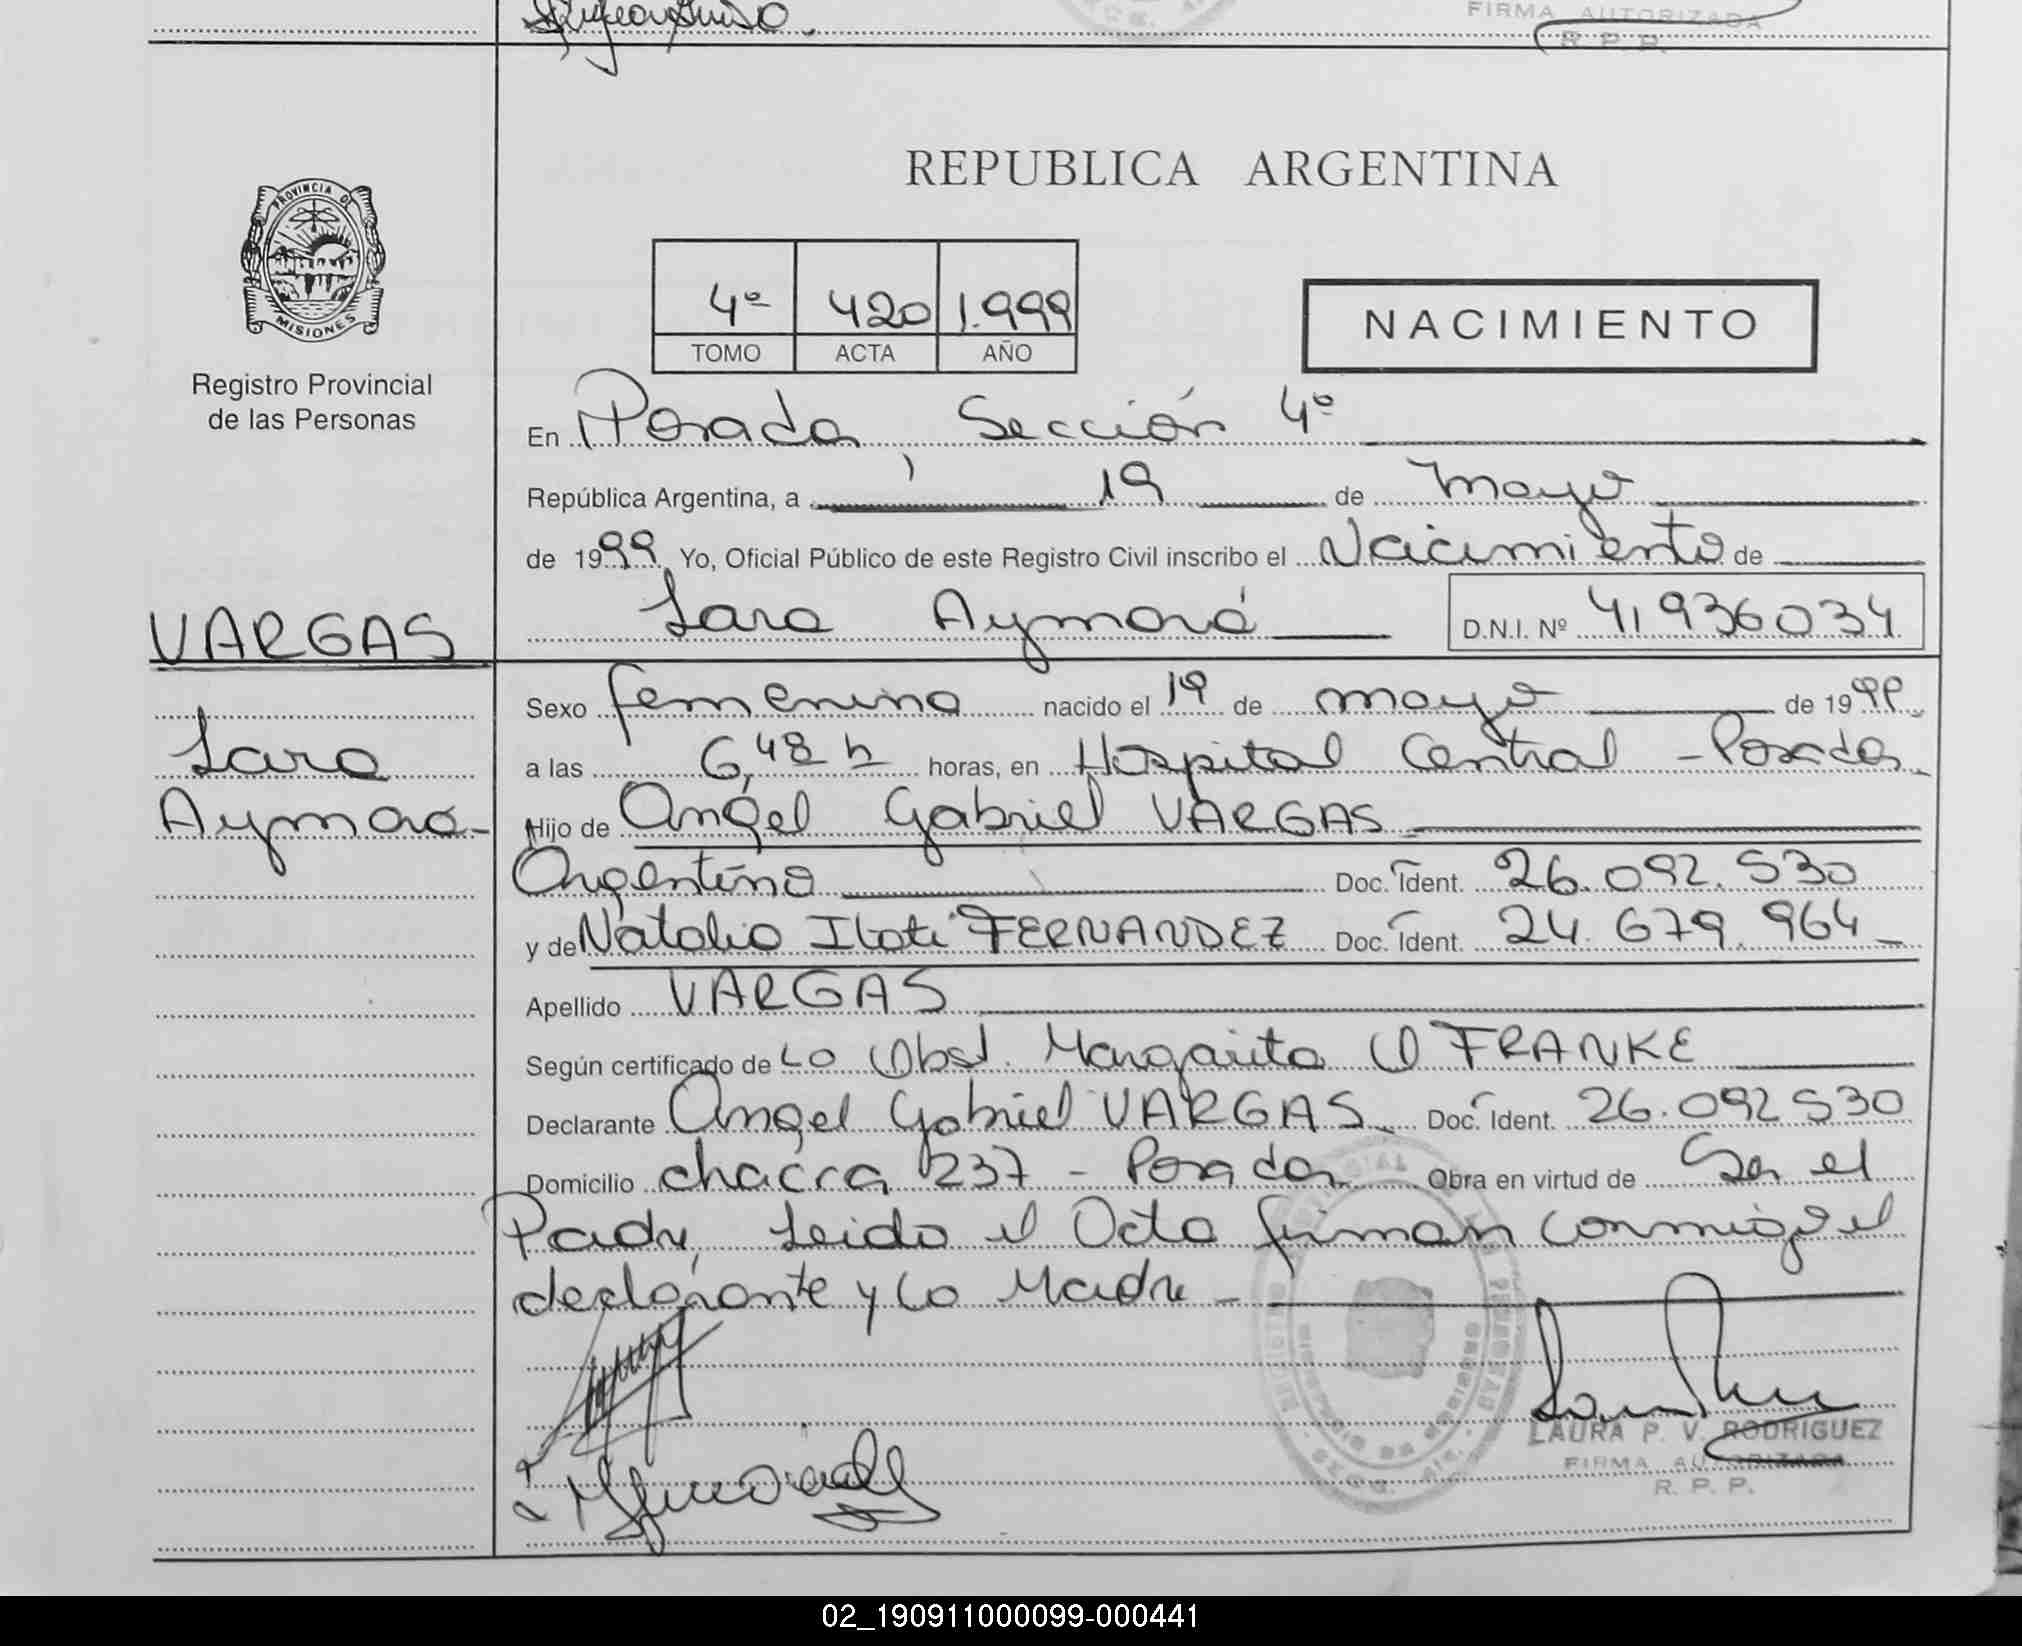 FIRMA AUTORIZADA
R. P. P.
PROVINCIA DE
MISIONES
Registro Provincial
de las Personas
REPUBLICA ARGENTINA
4º 420 1.999
TOMO ACTA AÑO
NACIMIENTO
En Posadas, Sección 4º
República Argentina, a 19 de mayo
de 1999 Yo, Oficial Público de este Registro Civil inscribo el Nacimiento de
VARGAS
Sara Aymará
D.N.I. Nº 41936034
Sara
Aymará
Sexo femenino nacido el 19 de mayo de 1999
a las 6,48 h horas, en Hospital Central - Posadas
Hijo de Angel Gabriel VARGAS
Argentino Doc. Ident. 26.092.530
y de Natalia Itatí FERNANDEZ Doc. Ident. 24.679.964
Apellido VARGAS
Según certificado de La Obst. Margarita O FRANKE
Declarante Angel Gabriel VARGAS Doc. Ident. 26.092530
Domicilio chacra 237 - Posadas Obra en virtud de Ser el
Padre, Leido el Acta firman conmigo el
declarante y la Madre -
LAURA P. V. RODRIGUEZ
FIRMA AUTORIZADA
R. P. P.
02_190911000099-000441